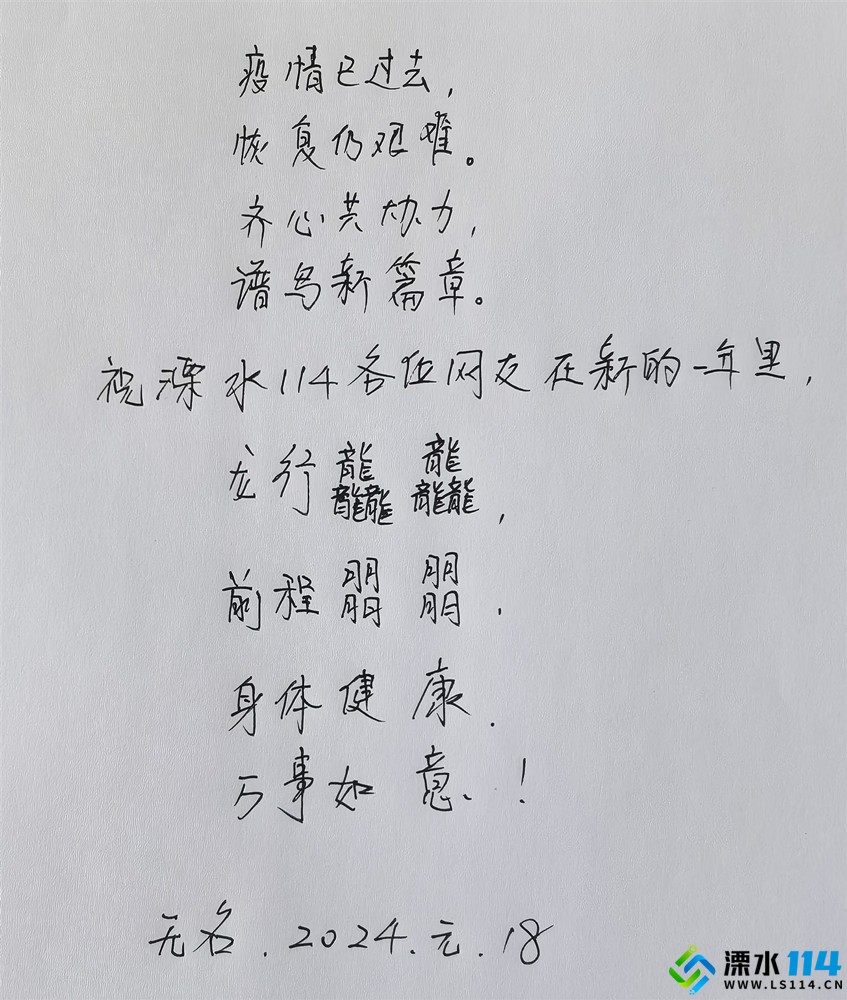 疫情已过去，
恢复仍艰难。
齐心共协力，
谱写新篇章。
祝溧水114各位网友在新的一年里，
龙行龘龘，
前程朤朤，
身体健康.
万事如意！
无名.2024.元.18
溧水114
WWW.LS114.CN